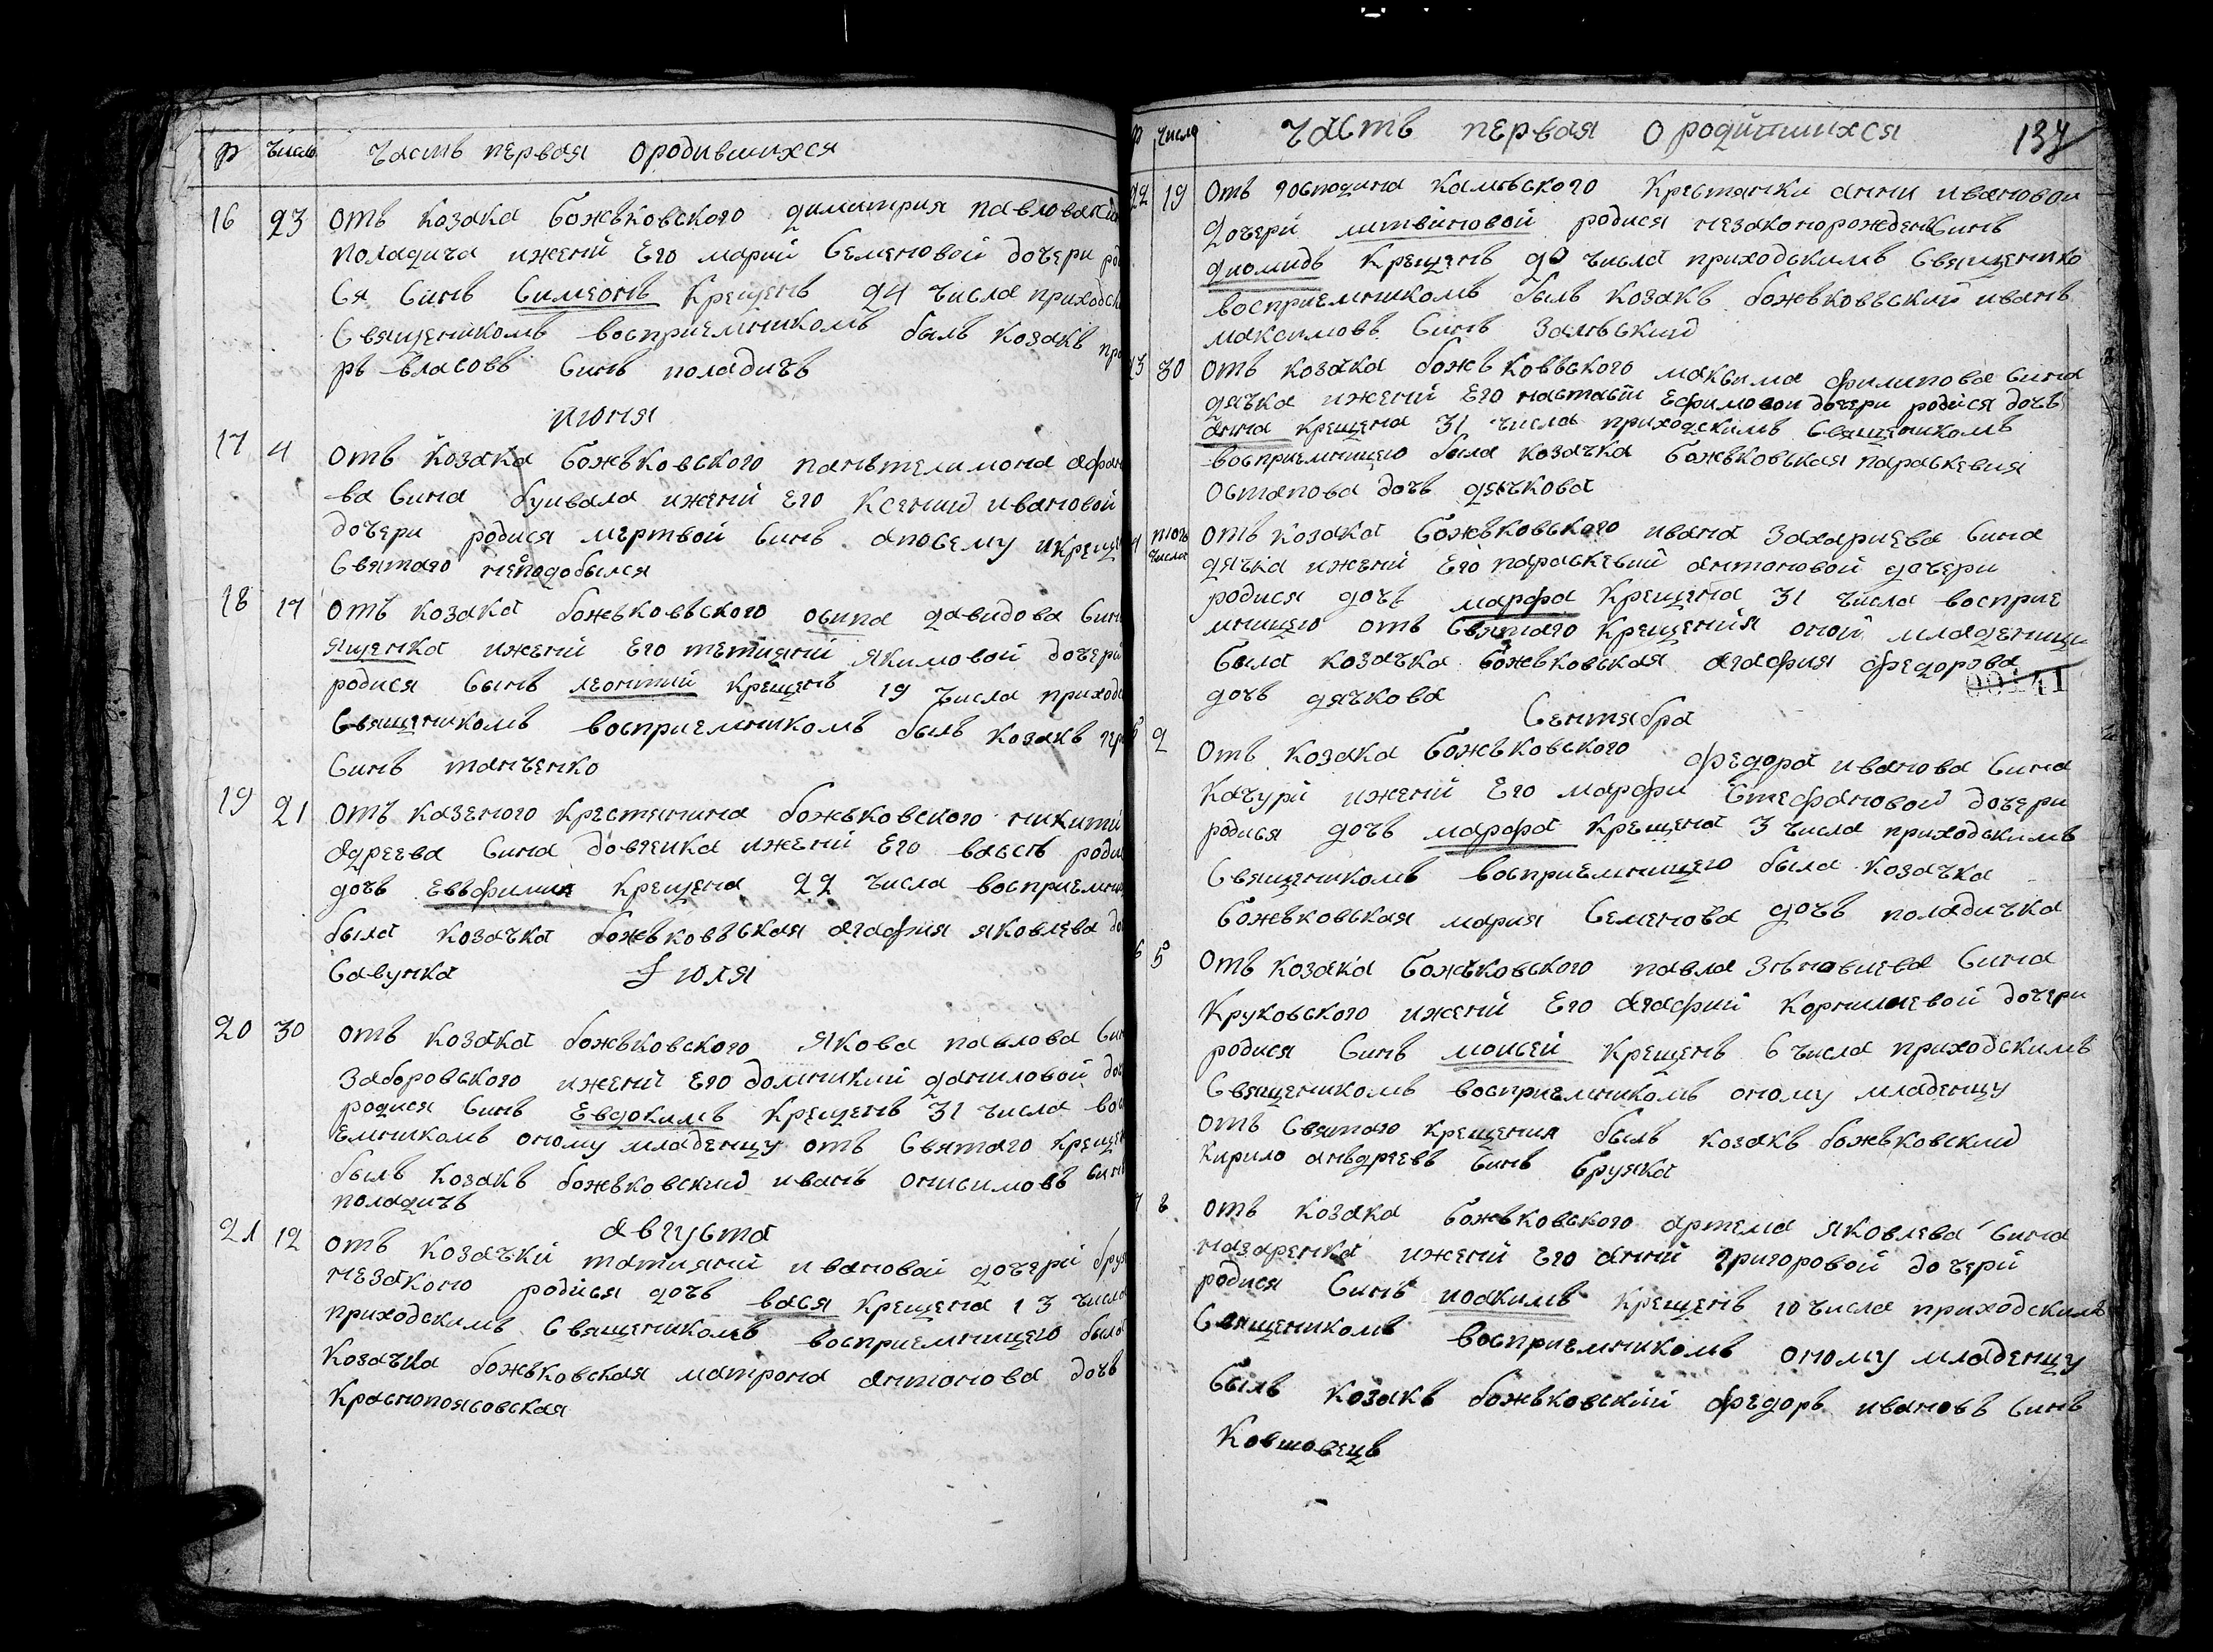 Число часть первая ородившихся
16 23 отъ козака божъковского димитрия павлова
поладича ижени Его марий Семеновой дочери
ся Синъ Симеонъ крещенъ 24 числа
Священикомъ восприемникомъ былъ козакъ
ръ власовъ Синъ поладичъ
июня
17 4 отъ козака божъковского панътелимона
ва Сина буивала ижени Его Ксении ивановой
дочери родися мертвой Синъ апосему
Святаго неподобылся
18 17 отъ козака божъковъского осипа давидова
ященка ижени Его тетияни якимовой дочери
родися Сынъ леонтий крещенъ 19 числа
Священикомъ восприемникомъ былъ козакъ
Синъ танченко
19 21 отъ казеного крестянина божъковского никити
адреева Сина довгенка ижени Его васъ
дочъ Евъфимия крещена 22 числа
была козачка божъковъская агафия яковлева
Савунка
Июля
20 30 отъ козака божъковского якова павлова
Заборовского ижени Его домникии даниловой
родися Синъ Евдокимъ крещенъ 31 числа
Емникомъ оному младенцу отъ Святаго
былъ козакъ божъковский иванъ онисимовъ
поладичъ
августа
21 12 отъ козачки татияни ивановой дочери
незаконо родися дочъ вася крещена 13 числа
приходскимъ Священикомъ восприемницею была
козачка божъковская матрона антонова дочъ
Краснопоясовская
число часть первая о родившихся 137
22 19 отъ господина Камъвского крестянки анни ивановой
дочери литвиновой родися незаконорожденъ Синъ
диомидъ крещенъ 20 числа приходскимъ
восприемникомъ былъ козакъ божъковъский иванъ
максимовъ Синъ
30 отъ козака божъковъского максима филипова Сина
дячка ижени Его настасии Ефимовой дочери родися дочъ
анна крещена 31 числа приходскимъ Священикомъ
восприемницею была козачка божъковъская параскевия
остапова дочъ дячкова
числа отъ козака божъковъского ивана Захариева Сина
дячка ижени Его параскевий антоновой дочери
родися дочъ марфа крещена 31 числа восприе
мницею отъ Святаго крещения оной младеници
была козачка божъковская агафия федорова
00141
дочъ дячкова
Сентября
2 отъ козака божъковского федора иванова Сина
качури ижени Его марфи Стефановой дочери
родися дочъ марфа крещена 3 числа приходскимъ
Священикомъ восприемницею была козачка
божъковская мария Семенова дочъ поладичка
5 отъ козака божъковского павла Зѣновиева Сина
Круковского ижени Его агафий корнилиевой дочери
родися Синъ моисей крещенъ 6 числа приходскимъ
Священикомъ восприемникомъ оному младенцу
отъ Святаго крещения былъ козакъ божъковский
Кирило анъдреевъ Синъ
8 отъ козака божъковского артема яковлева Сина
назаренка ижени Его анний григоровой дочери
родися Синъ иоакимъ крещенъ 10 числа приходскимъ
Священикомъ восприемникомъ оному младенцу
былъ козакъ божъковский федоръ ивановъ Синъ
Ковшовецъ